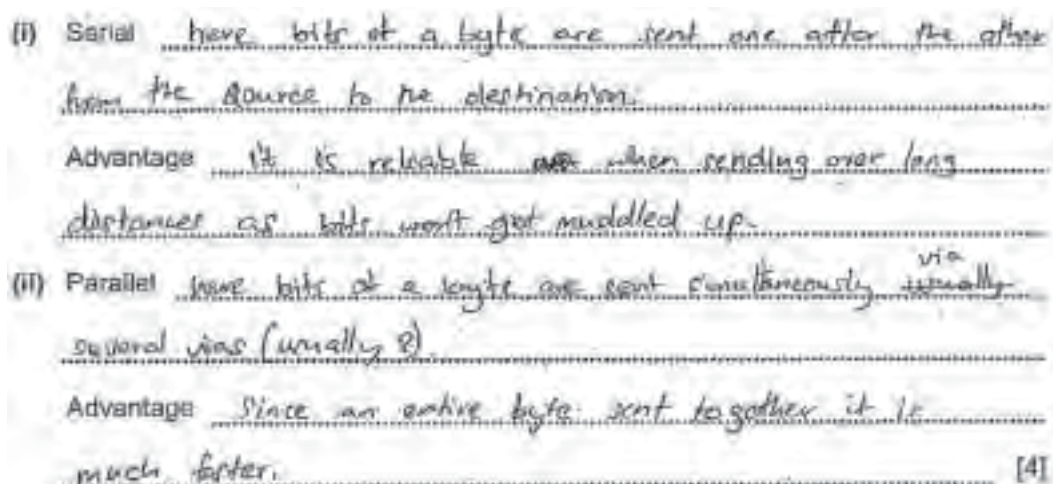 (i) Serial here bits of a byte are sent one after the other
from the source to the destination.
Advantage it is reliable when sending over long
distances as bits won't get muddled up.
(ii) Parallel here bits of a byte are sent simultaneously via
several (usually 8).
Advantage Since an entire byte sent together it is
much faster. [4]